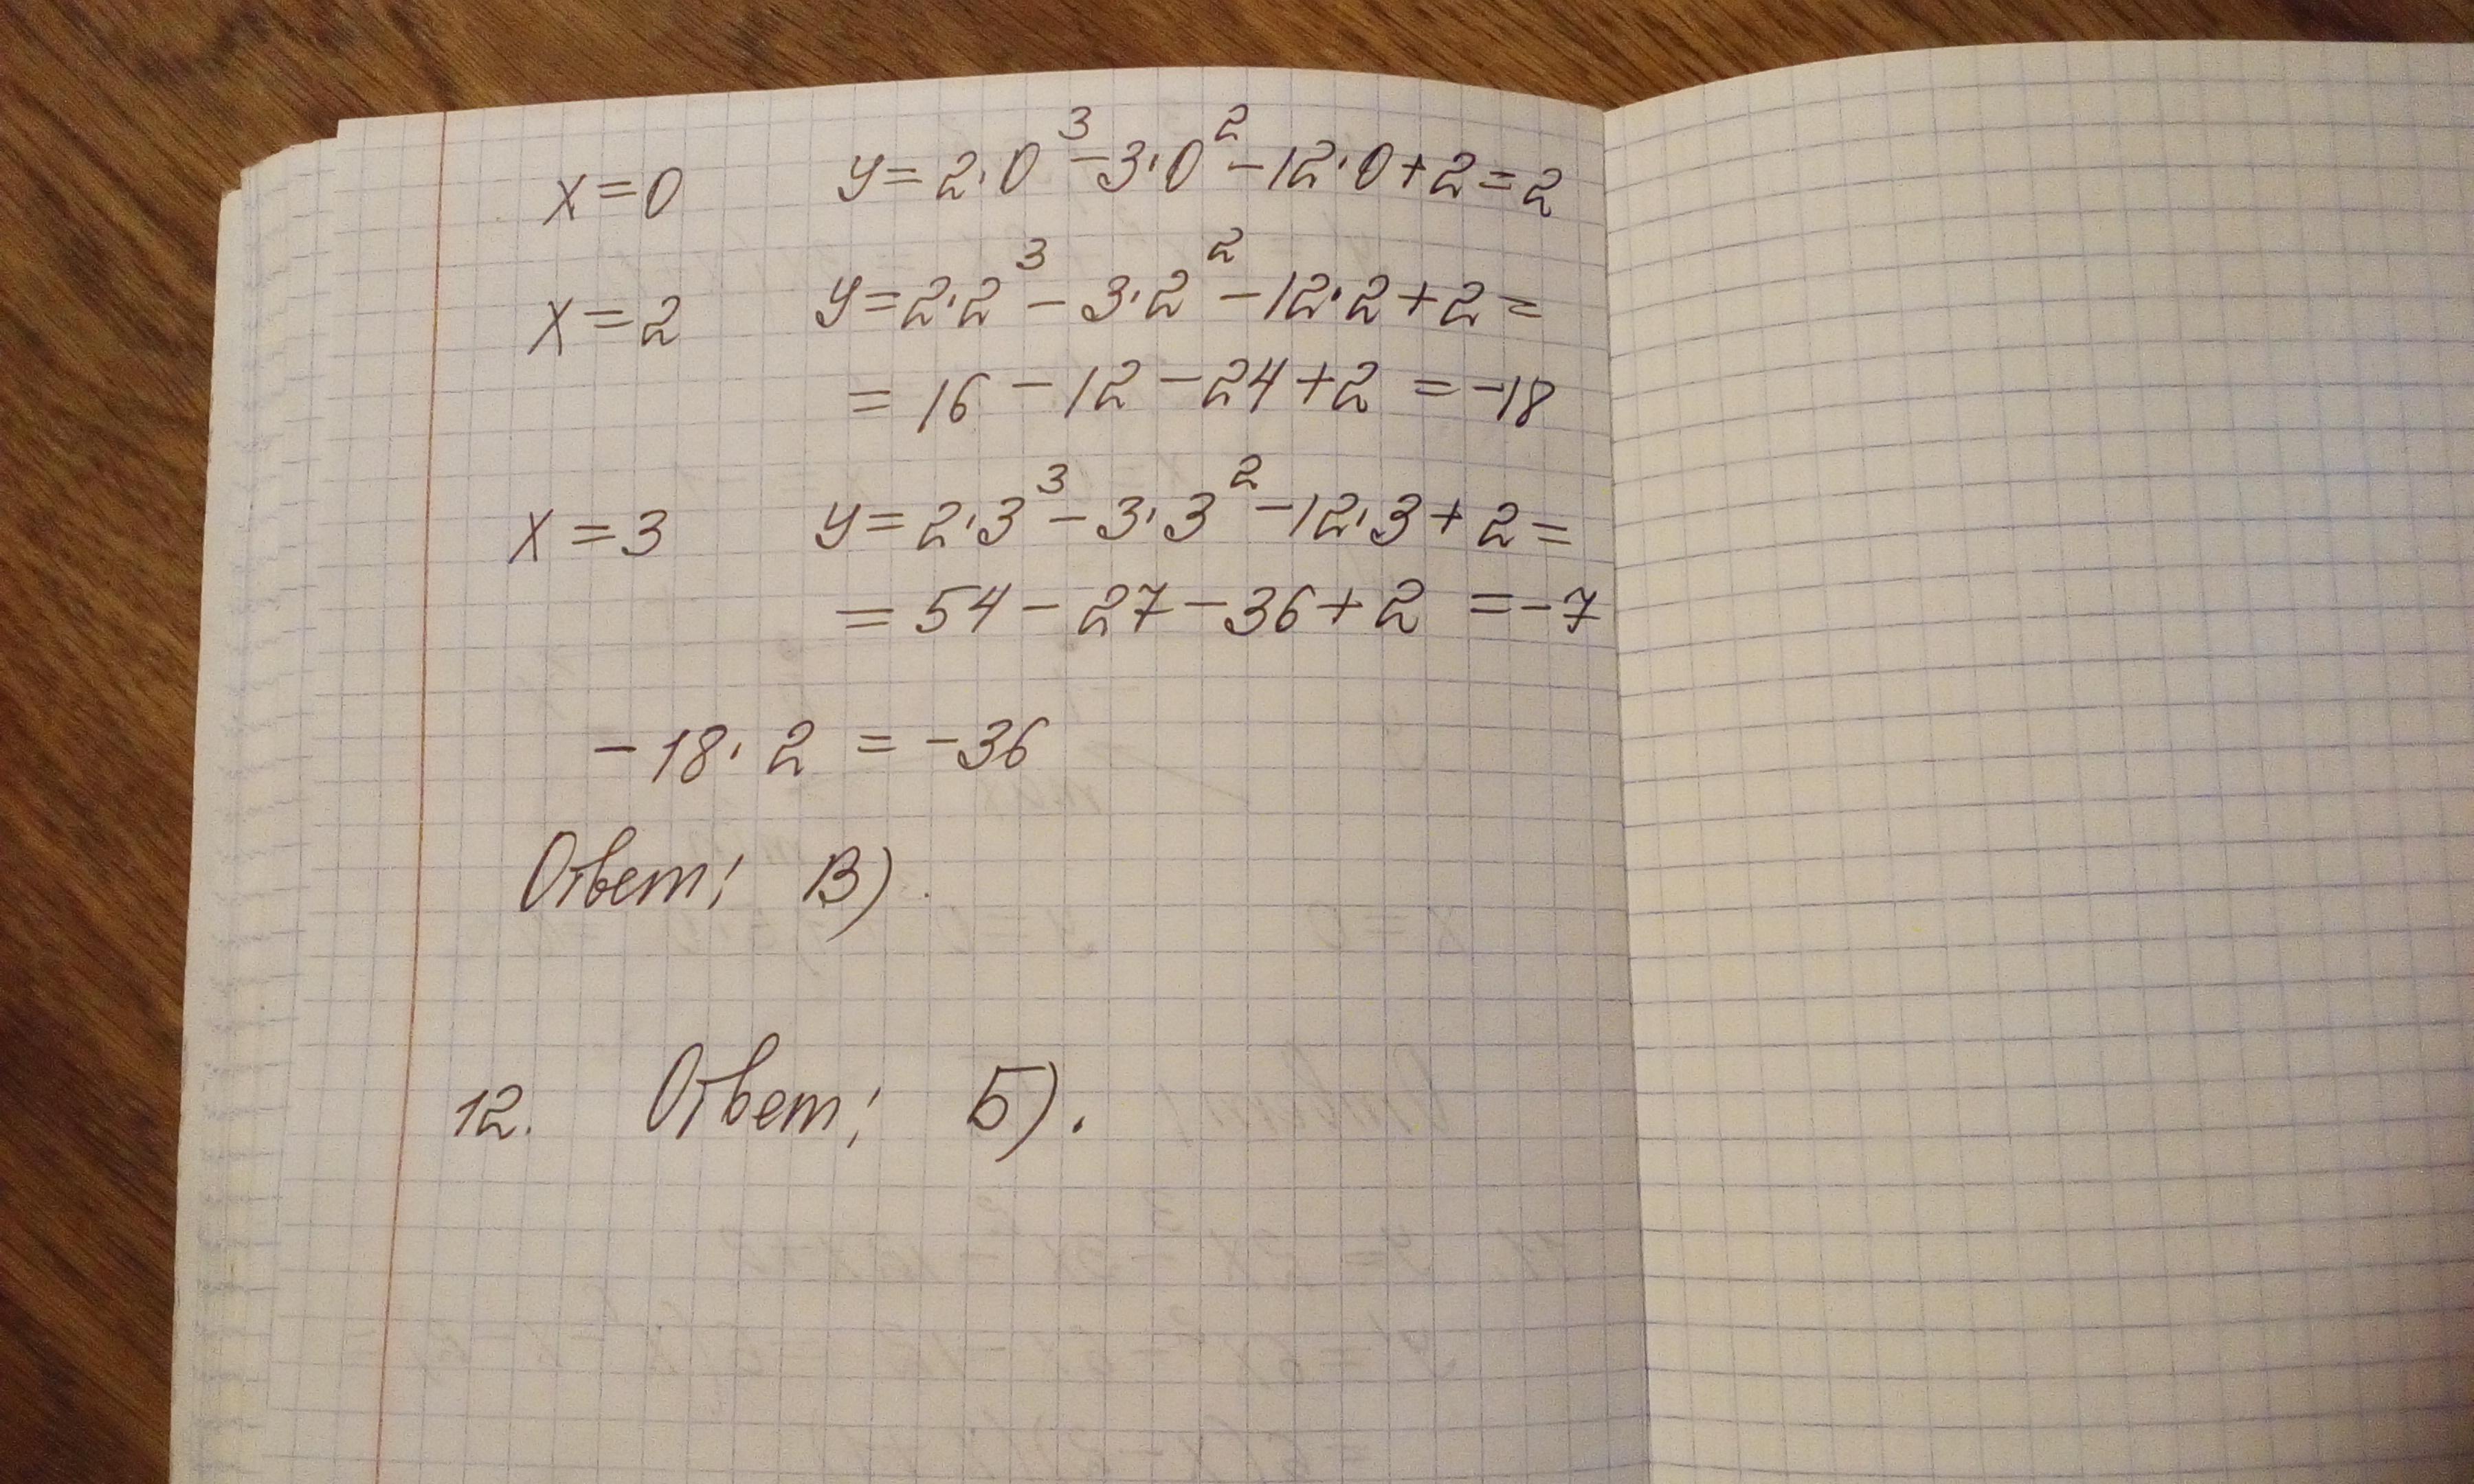 x=0 y=2·0³-3·0²-12·0+2=2
x=2 y=2·2³-3·2²-12·2+2=
=16-12-24+2=-18
x=3 y=2·3³-3·3²-12·3+2=
=54-27-36+2=-7
-18·2=-36
Ответ: В).
12. Ответ: Б).